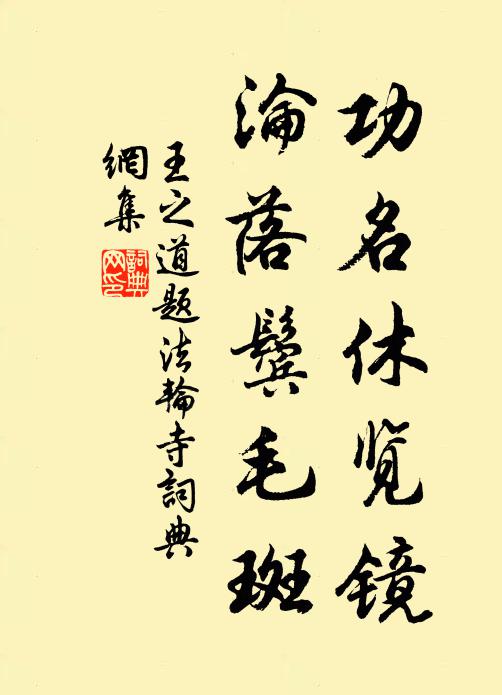 功名休览镜
淪落鬓毛斑
王之道题法輪寺詞典
網集
詞典
网印